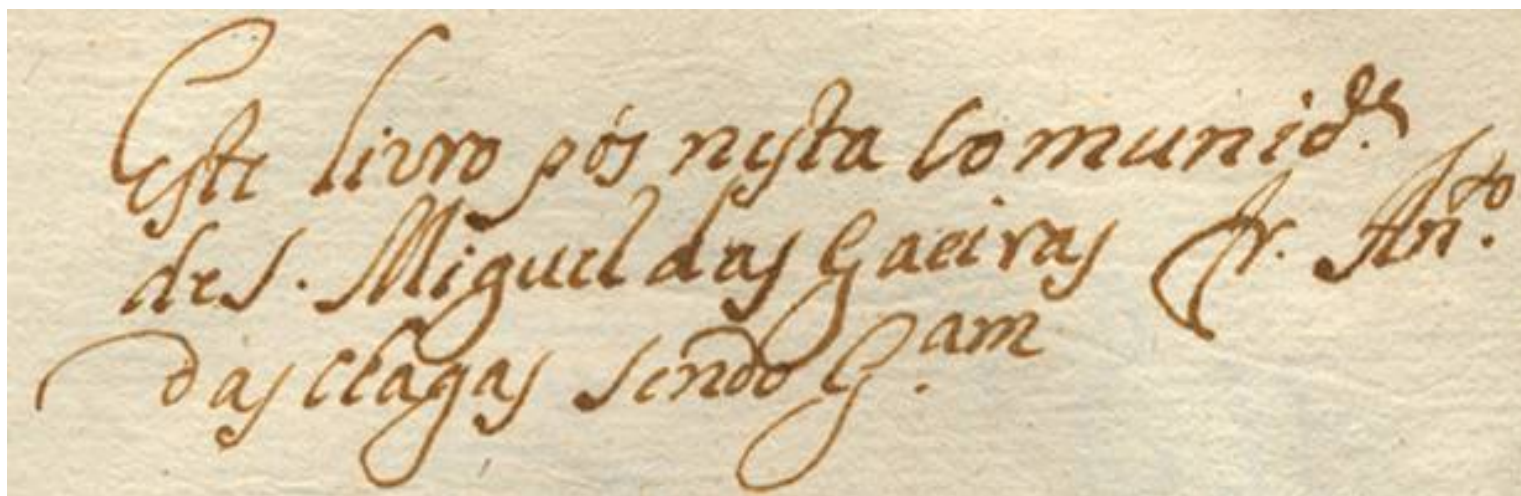 Este livro pós nesta Comunid.de
de S. Miguel das Gaeiras Fr. An.to
das Chagas sendo G.am